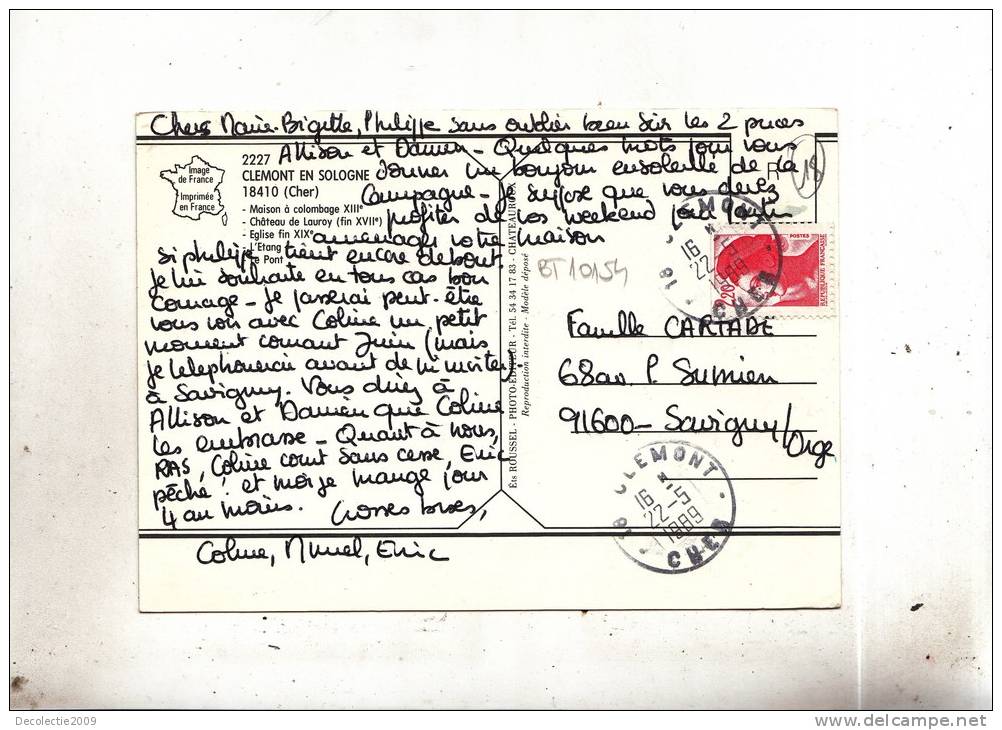 Chers Marie-Brigitte, Philippe sans oublier bien sûr les 2 puces
Allison et Damien - Quelques mots pour vous
donner un bonjour ensoleillé de la
campagne - Je suppose que vous devez
profiter de vos weekend pour
aménager votre maison
Si philippe tient encore debout
je lui souhaite en tous cas bon
courage - Je passerai peut-être
vous voir avec Coline un petit
moment courant Juin (mais
je telephonerai avant de m'inviter)
à Savigny. Vous direz à
Allison et Damien que Coline
les embrasse - Quant à nous,
RAS, Coline court sans cesse, Eric
pêche ! et moi je mange pour
4 au moins. Grosses bises,
Coline, Muriel, Eric
Image
de France
Imprimée
en France
2227
CLEMONT EN SOLOGNE
18410 (Cher)
- Maison à colombage XIIIe
- Château de Lauroy (fin XVIIe)
- Eglise fin XIXe
- L'Etang
- Le Pont
Éts ROUSSEL - PHOTO-ÉDITEUR - Tél. 54 34 17 83 - CHATEAUROUX
Reproduction interdite - Modèle déposé
BT10154
R
18
CLEMONT
16
22-5
1989
18 CHER
POSTES
2,20
REPUBLIQUE FRANÇAISE
Famille CARTADE
68 av P. Sumien
91600 - Savigny/Orge
CLEMONT
16
22-5
1989
18 CHER
Decolectie2009
www.delcampe.net